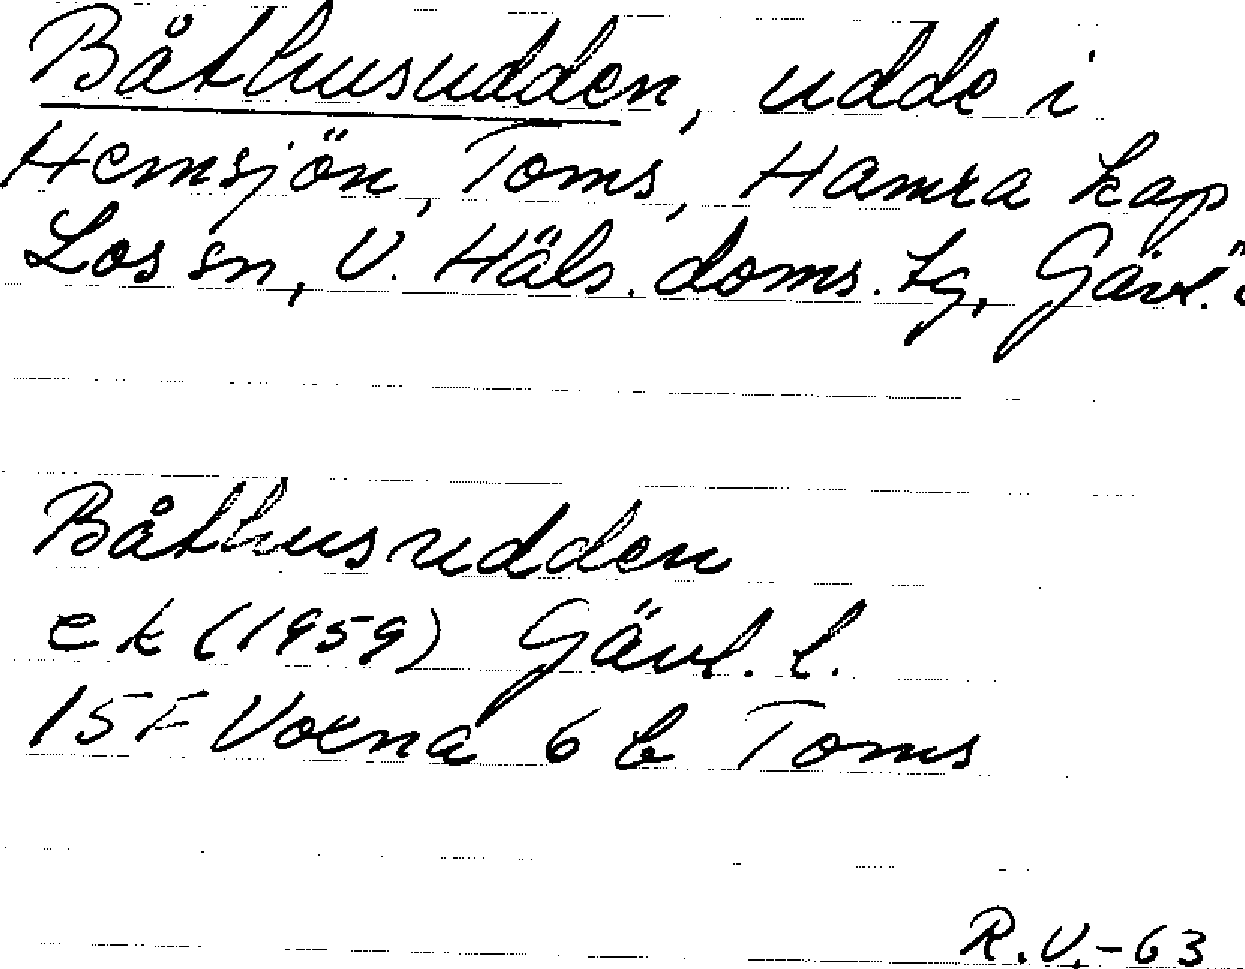 Båthusudden, udde i
Hemsjön, Toms, Hamra kap
Los sn, V. Häls. doms. tg, Gävl.
Båthusudden
ek (1959) Gävl. l.
15F Voxna 6 b Toms
R.V.-63